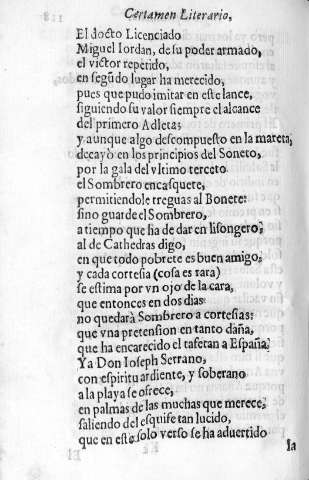 Certamen Literario,
El docto Licenciado
Miguel Iordan, de su poder armado,
el victor repetido,
en segũdo lugar ha merecido,
pues que pudo imitar en este lance,
siguiendo su valor siempre el alcance
del primero Adleta;
y aunque algo descompuesto en la mareta,
decayò en los principios del Soneto,
por la gala del vltimo terceto
el Sombrero encasquete,
permitiendole treguas al Bonete:
sino guarde el Sombrero,
a tiempo que ha de dar en lisongero;
al de Cathedras digo,
en que todo pobrete es buen amigo;
y cada cortesia (cosa es rara)
se estima por vn ojo de la cara,
que entonces en dos dias
no quedarà Sombrero a cortesias:
que vna pretension en tanto daña,
que ha encarecido el tafetan a España.
Ya Don Ioseph Serrano,
con espiritu ardiente, y soberano
a la playa se ofrece,
en palmas de las muchas que merece;
saliendo del esquife tan lucido,
que en este solo verso se ha advertido
la